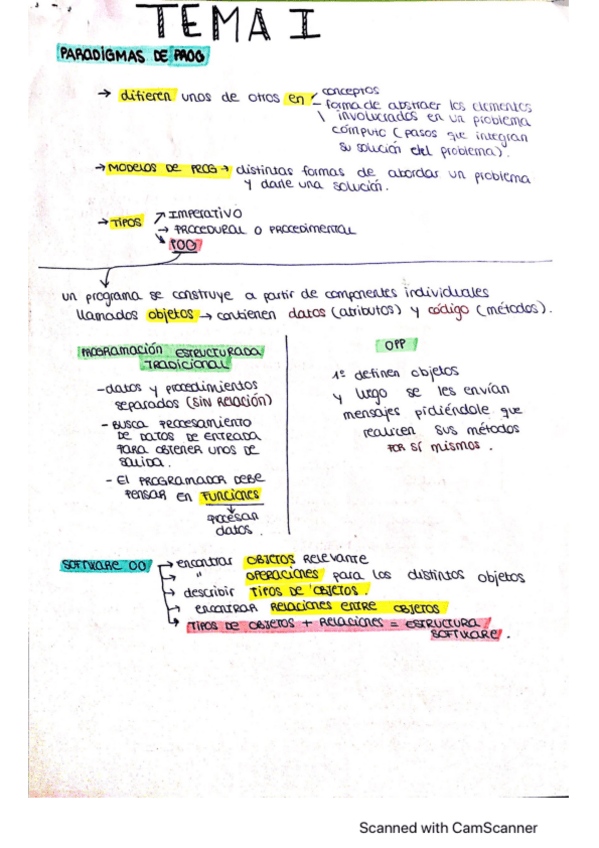 TEMA I
PARADIGMAS DE PROG
→ difieren unos de otros en - conceptos
- forma de abstraer los elementos
\ involucrados en un problema
cómputo (pasos que integran
su solución del problema).
→ MODELOS DE PROG → distintas formas de abordar un problema
y darle una solución.
→ TIPOS ↗ IMPERATIVO
→ PROCEDURAL O PROCEDIMENTAL
↘ POO
un programa se construye a partir de componentes individuales
llamados objetos → contienen datos (atributos) y código (métodos).
PROGRAMACIÓN ESTRUCTURADA
TRADICIONAL
- datos y procedimientos
separados (SIN RELACIÓN)
- BUSCA PROCESAMIENTO
DE DATOS DE ENTRADA
PARA OBTENER UNOS DE
SALIDA.
- El PROGRAMADOR DEBE
PENSAR EN FUNCIONES
↓
procesan
datos.
OPP
1º definen objetos
y luego se les envían
mensajes pidiéndole que
realicen sus métodos
POR SÍ MISMOS.
SOFTWARE OO → encontrar OBJETOS RELEVANTE
→ " OPERACIONES para los distintos objetos
→ describir TIPOS DE OBJETOS.
→ ENCONTRAR RELACIONES ENTRE OBJETOS
→ TIPOS DE OBJETOS + RELACIONES = ESTRUCTURA
SOFTWARE.
Scanned with CamScanner